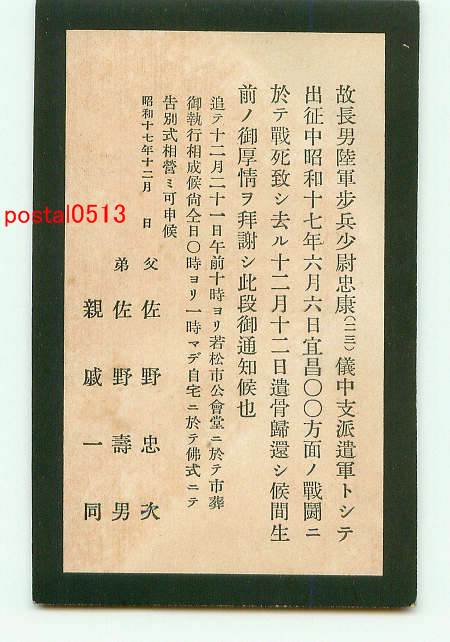 故長男陸軍步兵少尉忠康(二三)儀中支派遣軍トシテ
出征中昭和十七年六月六日宜昌〇〇方面ノ戰鬪ニ
於テ戰死致シ去ル十二月十二日遺骨歸還シ候間生
前ノ御厚情ヲ拜謝シ此段御通知候也
追テ十二月二十一日午前十時ヨリ若松市公會堂ニ於テ市葬
御執行相成候尙仝日〇時ヨリ一時マデ自宅ニ於テ佛式ニテ
告別式相營ミ可申候
昭和十七年十二月 日
父 佐野忠次
弟 佐野壽男
親戚一同
postal0513